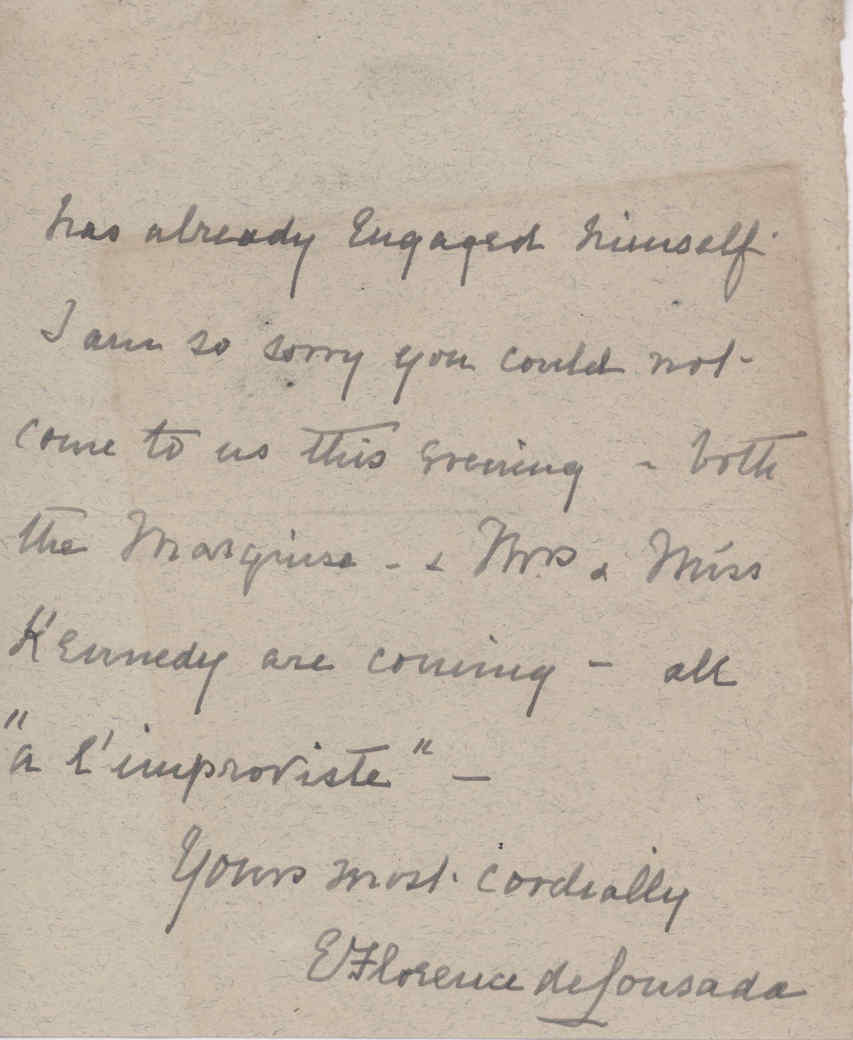 has already Engaged himself.
I am so sorry you could not
come to us this Evening - both
the Marquise - & Mrs & Miss
Kennedy are coming - all
"à l'improviste" -
Yours most cordially
E Florence de Lousada